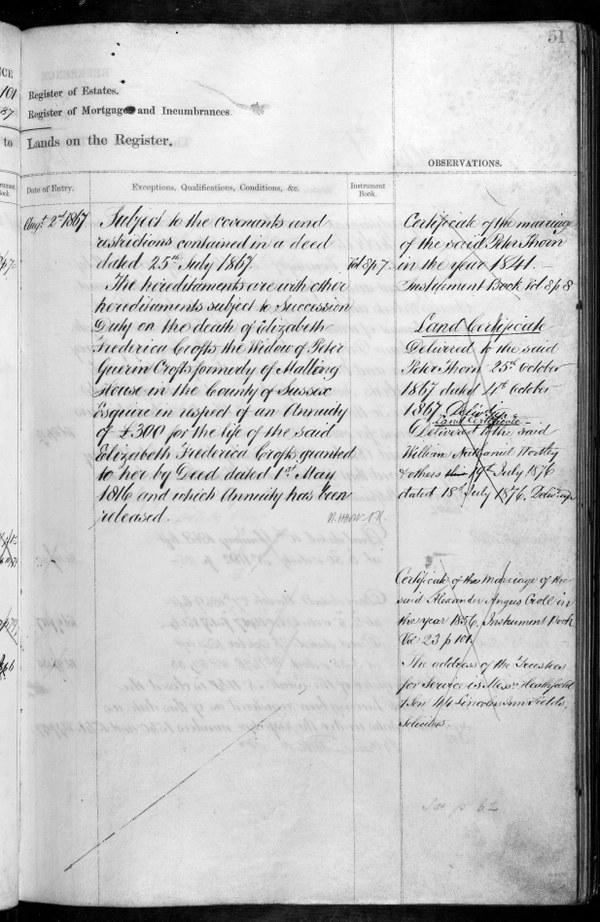 51
NCE
101
37
to
Register of Estates.
Register of Mortgages and Incumbrances
Lands on the Register.
OBSERVATIONS.
Date of Entry.
Exceptions, Qualifications, Conditions, &c.
Instrument
Book.
Augt. 2nd 1867
Subject to the covenants and
restrictions contained in a deed
dated 25th July 1867.
Vol 8 p 7.
The hereditaments are with other
hereditaments subject to Succession
Duty on the death of Elizabeth
Frederica Crofts the Widow of Peter
Guerin Crofts formerly of Malling
House in the County of Sussex
Esquire in respect of an Annuity
of £300 for the life of the said
Elizabeth Frederica Crofts granted
to her by Deed dated 1st May
1816 and which Annuity has been
released.
Certificate of the marriage
of the said Peter Thorn
in the year 1841. –
Instrument Book Vol 8 p 8
Land Certificate
Delivered to the said
Peter Thorn 25th October
1867 dated 4th October
1867.
Land Certificate
Delivered to the said
William Nathaniel
& others 19th July 1876
dated 18th July 1876.
Certificate of the Marriage of the
said Alexander Angus Croll in
the year 1856. Instrument Book
Vol 23 p 101.
The address of the Trustees
for Service is Messrs Heathfield
& Son 44 Lincolns Inn Fields,
Solicitors.
See p 62